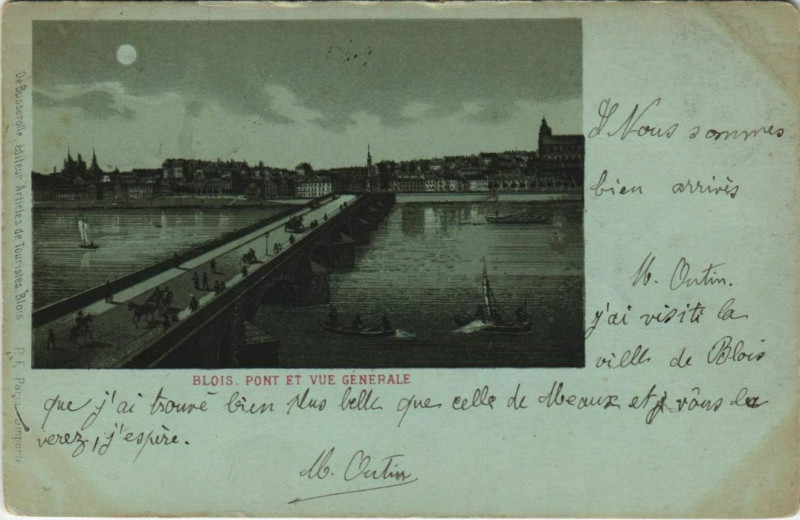 Nous sommes
bien arrivés
M. Outin.
j'ai visité la
ville de Blois
BLOIS. PONT ET VUE GÉNÉRALE
que j'ai trouvé bien plus belle que celle de Meaux et vous la
verez, j'espère.
M. Outin
De Busserolle, éditeur, Articles de Touristes, Blois